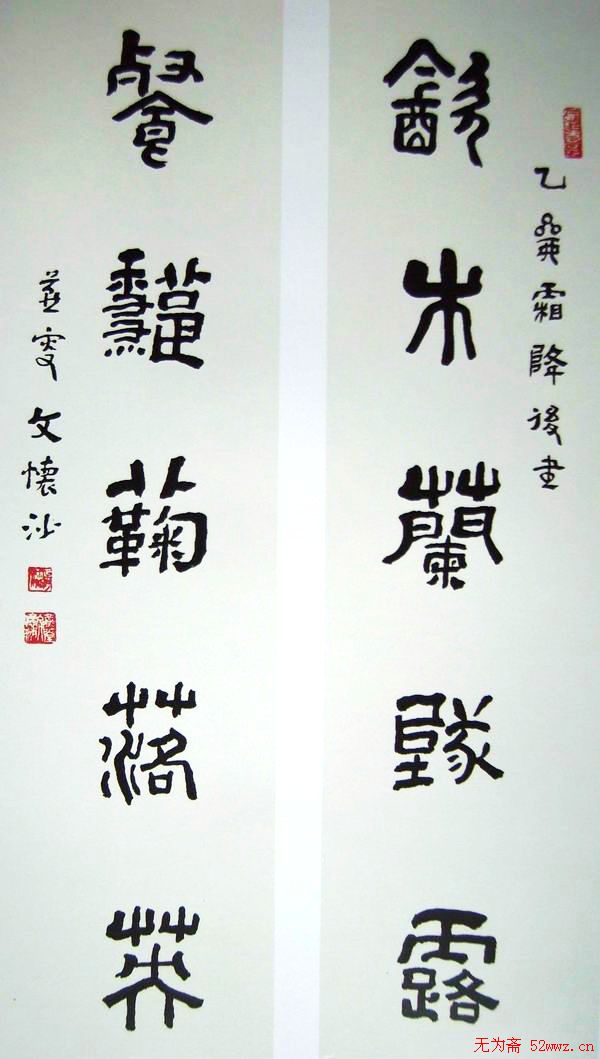 乙霜降後書
㱃木蘭墜露
餐秋蘜落英
燕叟文懷沙
无为斋 52wwz.cn